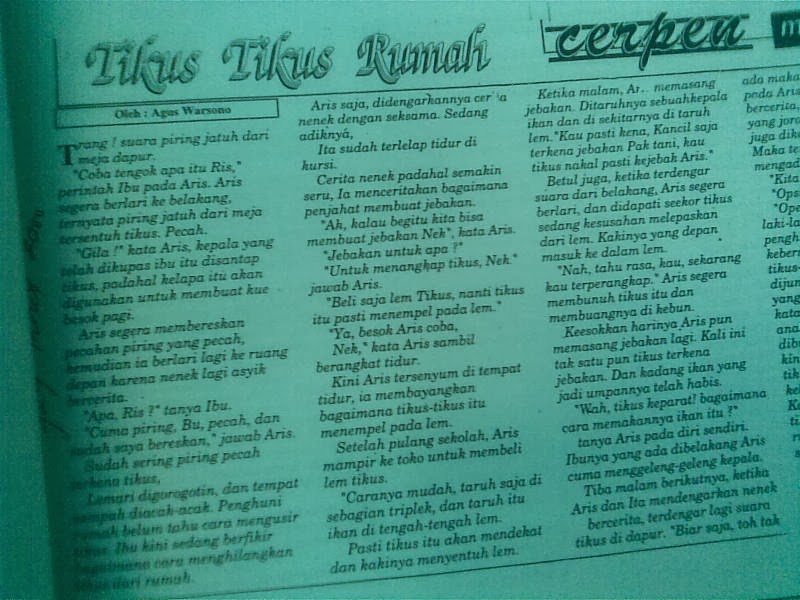 Tikus Tikus Rumah
cerpen
Oleh : Agus Warsono
Trang ! suara piring jatuh dari
meja dapur.
"Coba tengok apa itu Ris,"
perintah Ibu pada Aris. Aris
segera berlari ke belakang,
ternyata piring jatuh dari meja
tersentuh tikus. Pecah.
"Gila !" kata Aris, kepala yang
telah dikupas ibu itu disantap
tikus, padahal kelapa itu akan
digunakan untuk membuat kue
besok pagi.
Aris segera membereskan
pecahan piring yang pecah,
kemudian ia berlari lagi ke ruang
depan karena nenek lagi asyik
bercerita.
"Apa, Ris ?" tanya Ibu.
"Cuma piring, Bu, pecah, dan
sudah saya bereskan," jawab Aris.
Sudah sering piring pecah
terkena tikus,
Lemari digorogotin, dan tempat
sampah diacah-acak. Penghuni
rumah belum tahu cara mengusir
tikus. Ibu kini sedang berfikir
bagaimana cara menghilangkan
tikus dari rumah.
Aris saja, didengarkannya cerita
nenek dengan seksama. Sedang
adiknya,
Ita sudah terlelap tidur di
kursi.
Cerita nenek padahal semakin
seru, Ia menceritakan bagaimana
penjahat membuat jebakan.
"Ah, kalau begitu kita bisa
membuat jebakan Nek", kata Aris.
"Jebakan untuk apa ?"
"Untuk menangkap tikus, Nek."
jawab Aris.
"Beli saja lem Tikus, nanti tikus
itu pasti menempel pada lem."
"Ya, besok Aris coba,
Nek," kata Aris sambil
berangkat tidur.
Kini Aris tersenyum di tempat
tidur, ia membayangkan
bagaimana tikus-tikus itu
menempel pada lem.
Setelah pulang sekolah, Aris
mampir ke toko untuk membeli
lem tikus.
"Caranya mudah, taruh saja di
sebagian triplek, dan taruh itu
ikan di tengah-tengah lem.
Pasti tikus itu akan mendekat
dan kakinya menyentuh lem.
Ketika malam, Ar.. memasang
jebakan. Ditaruhnya sebuahkepala
ikan dan di sekitarnya di taruh
lem."Kau pasti kena, Kancil saja
terkena jebakan Pak tani, kau
tikus nakal pasti kejebak Aris."
Betul juga, ketika terdengar
suara dari belakang, Aris segera
berlari, dan didapati seekor tikus
sedang kesusahan melepaskan
dari lem. Kakinya yang depan
masuk ke dalam lem.
"Nah, tahu rasa, kau, sekarang
kau terperangkap." Aris segera
membunuh tikus itu dan
membuangnya di kebun.
Keesokkan harinya Aris pun
memasang jebakan lagi. Kali ini
tak satu pun tikus terkena
jebakan. Dan kadang ikan yang
jadi umpannya telah habis.
"Wah, tikus keparat! bagaimana
cara memakannya ikan itu ?"
tanya Aris pada diri sendiri.
Ibunya yang ada dibelakang Aris
cuma menggeleng-geleng kepala.
Tiba malam berikutnya, ketika
Aris dan Ita mendengarkan nenek
bercerita, terdengar lagi suara
tikus di dapur. "Biar saja, toh tak
ada maka
pada Aris
bercerita,
yang joro
juga diku
Maka te
mengad
"Kita
"Ops
"Ope
laki-la
pengh
keber
tikus-
dijum
yang
kata
ana
dibu
kin
tik